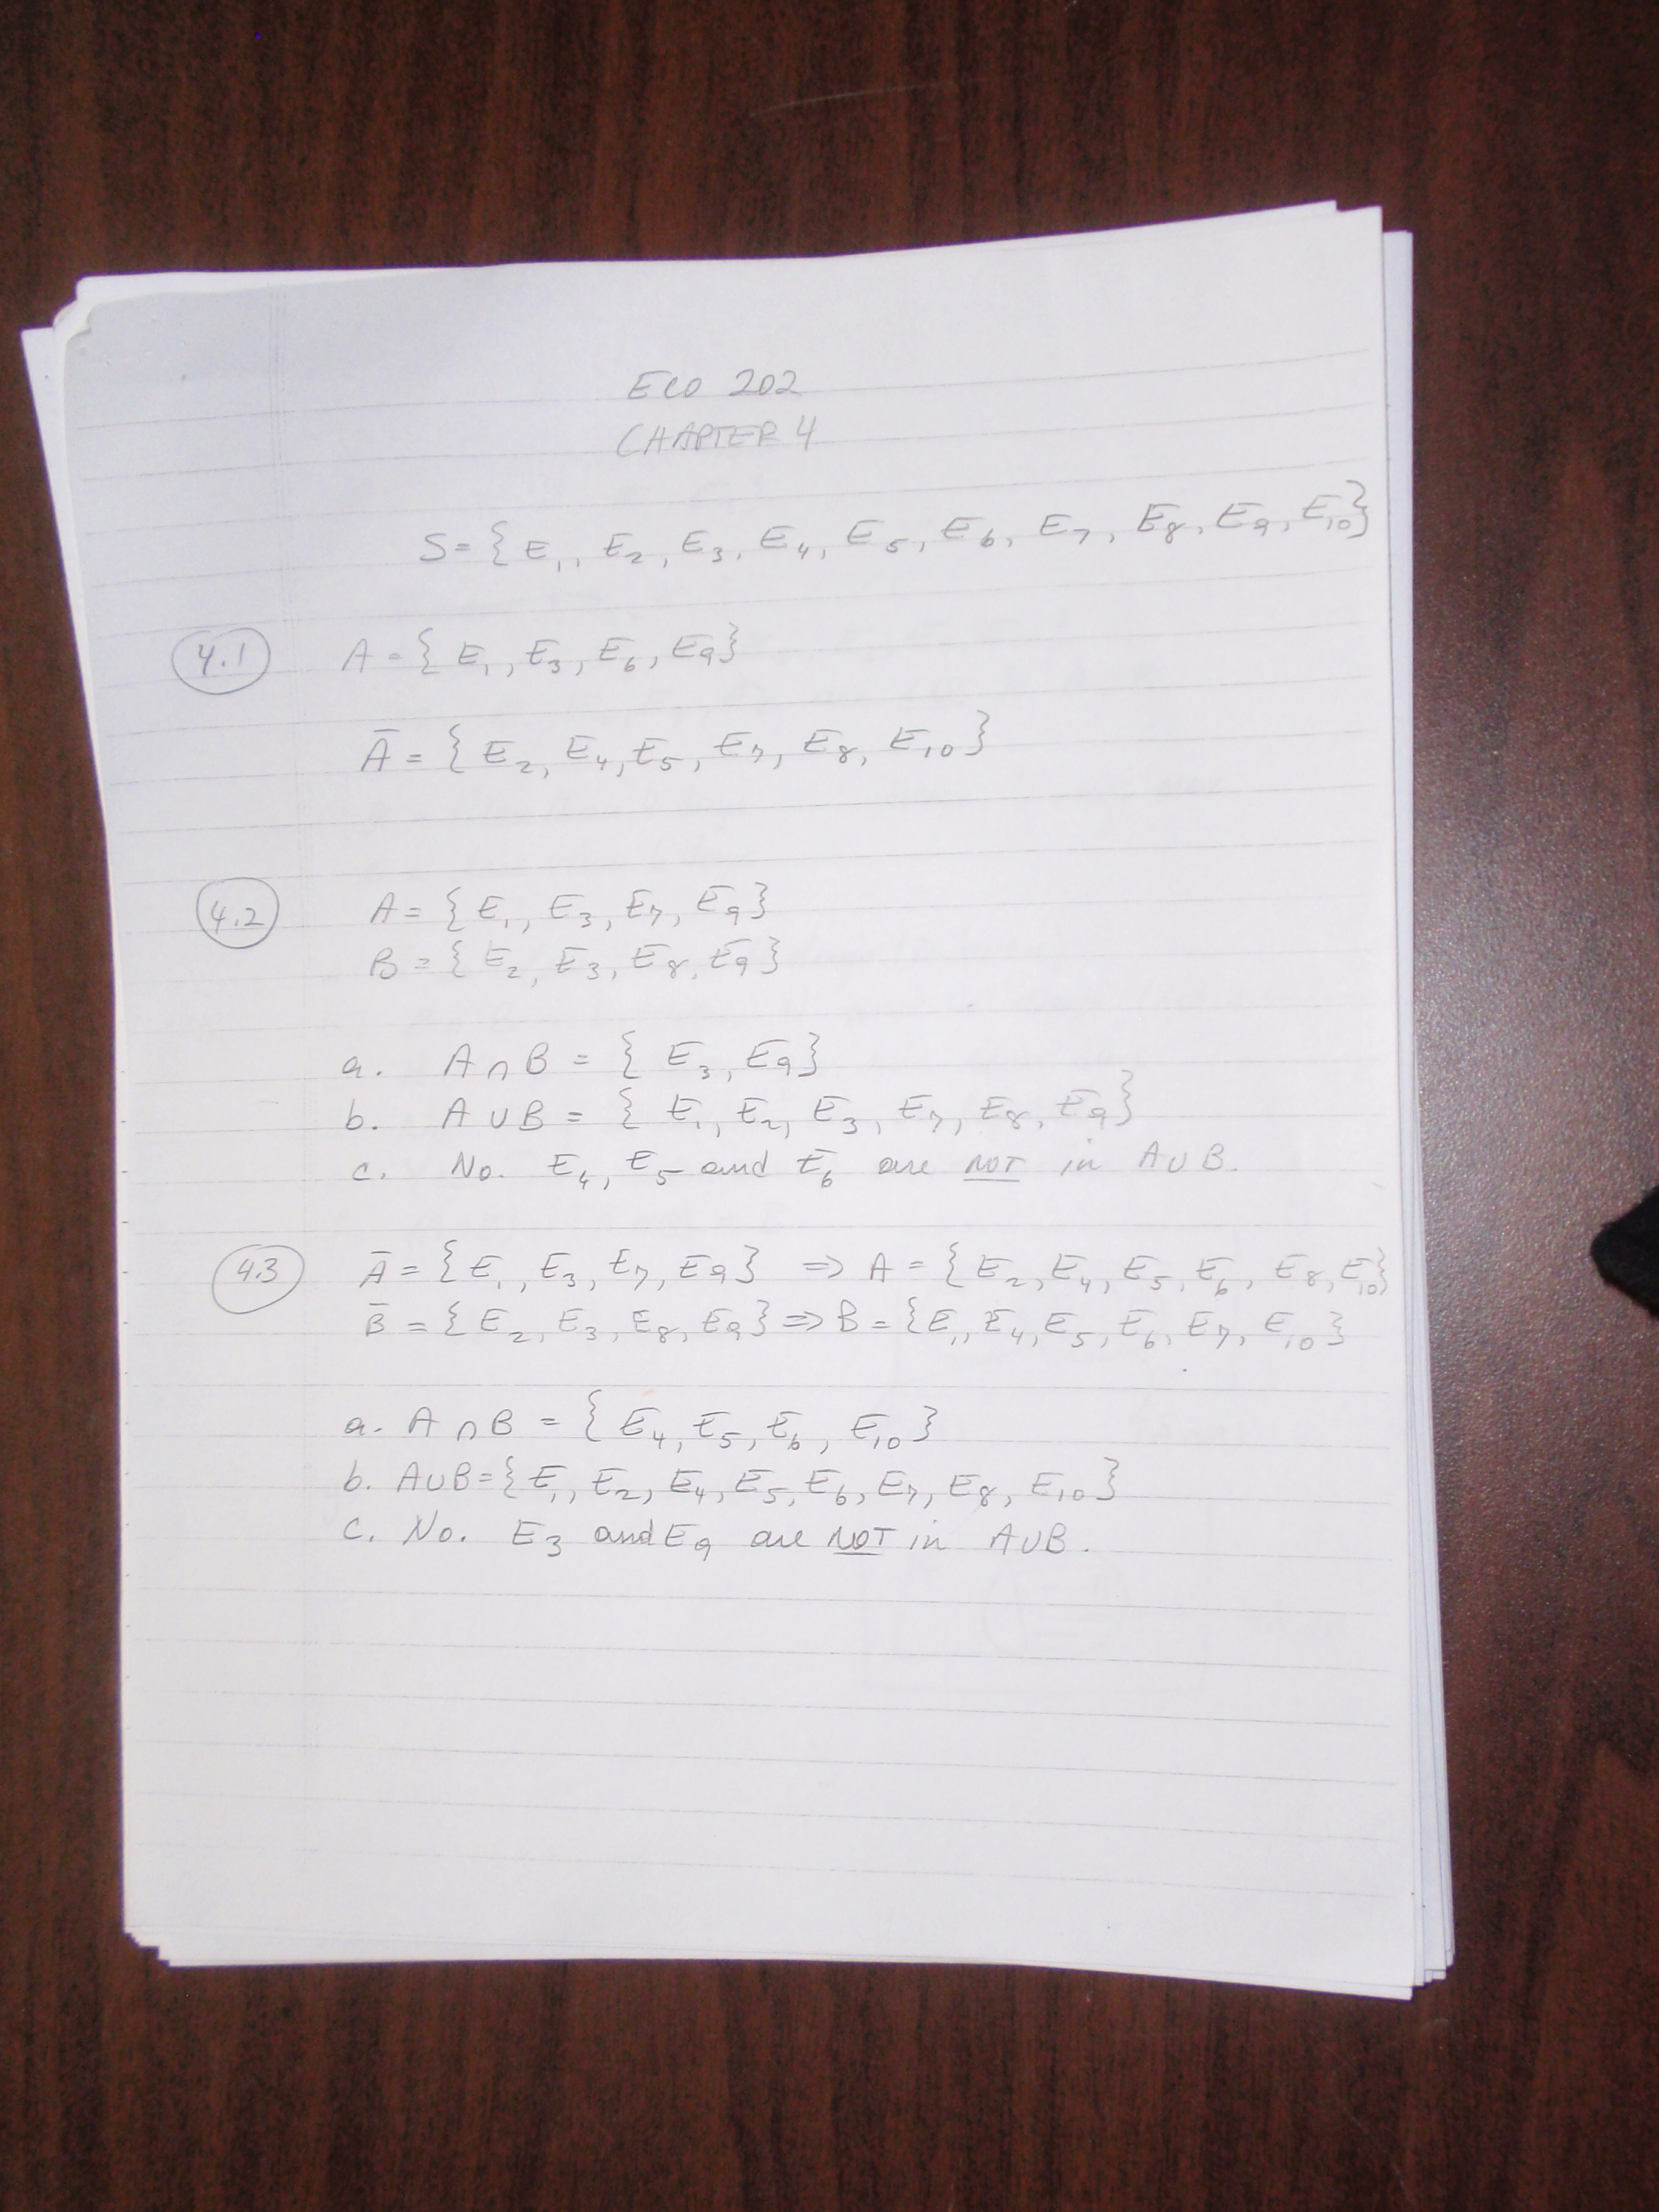 ECO 202
CHAPTER 4
S = { E₁, E₂, E₃, E₄, E₅, E₆, E₇, E₈, E₉, E₁₀}
4.1 A = { E₁, E₃, E₆, E₉}
Ā = { E₂, E₄, E₅, E₇, E₈, E₁₀ }
4.2 A = { E₁, E₃, E₇, E₉ }
B = { E₂, E₃, E₈, E₉ }
a. A ∩ B = { E₃, E₉}
b. A ∪ B = { E₁, E₂, E₃, E₇, E₈, E₉}
c. No. E₄, E₅ and E₆ are NOT in A ∪ B.
4.3 Ā = { E₁, E₃, E₇, E₉ } ⇒ A = { E₂, E₄, E₅, E₆, E₈, E₁₀}
B̄ = { E₂, E₃, E₈, E₉ } ⇒ B = { E₁, E₄, E₅, E₆, E₇, E₁₀ }
a. A ∩ B = { E₄, E₅, E₆, E₁₀ }
b. A∪B = { E₁, E₂, E₄, E₅, E₆, E₇, E₈, E₁₀ }
c. No. E₃ and E₉ are NOT in A∪B.